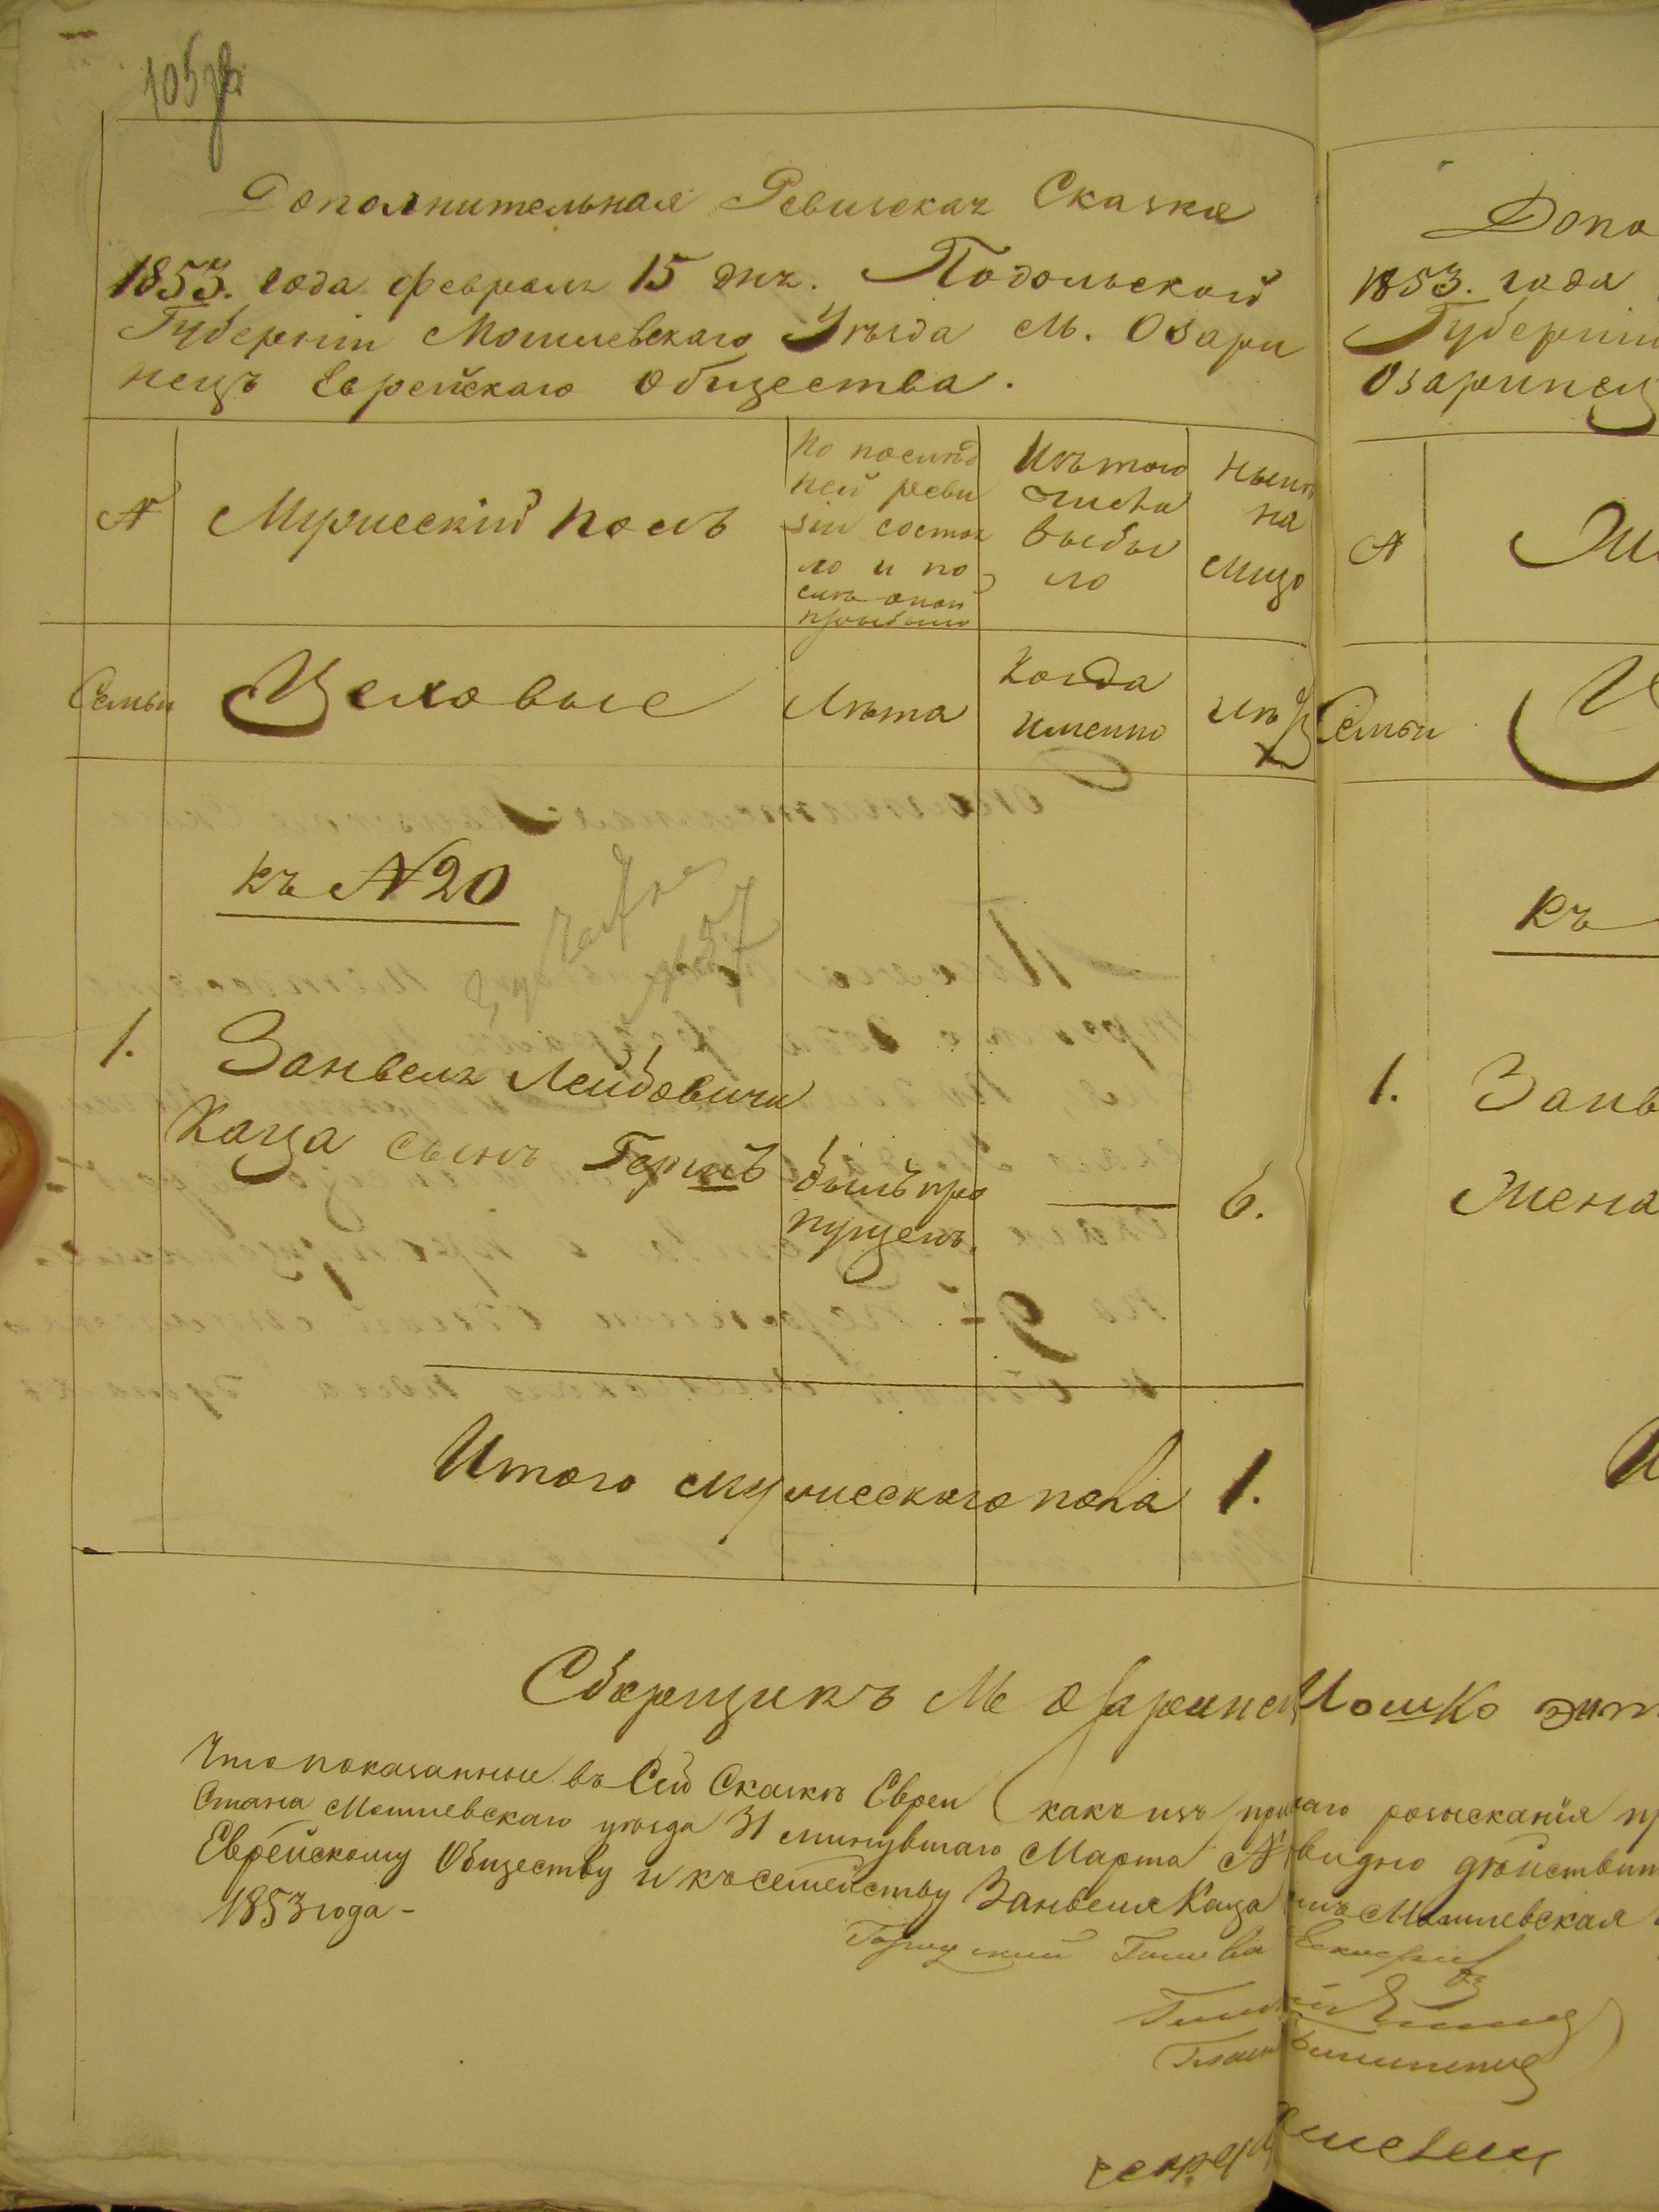 Дополнительная Ревизская Сказка
1853. года февраля 15 дня. Подольской
Губерніи Могилевскаго Уѣзда М. Озари
нецъ Еврейскаго Общества.
№
Мужескій полъ
По послѣд
ней реви
зіи состоя
ло и по
слѣ оной
прибыло
Изъ того
числа
выбы
ло
Нынѣ
на
лицо
Семьи
Целовые
Лѣта
Когда
именно
Лѣ
къ №20
1.
Занвеля Лейбовича
Каца сынъ Гершъ
былъ про
пущенъ.
6.
Итого мужескаго пола
1.
Зборщикъ М Озаринец Мошко
Что показанные въ Сей Сказкѣ Евреи (какъ изъ розысканія
Стана Могилевскаго уѣзда 31 минувшаго Марта № видно дѣйствит
Еврейскому Обществу и къ семейству Занвеля Каца Могилевская
1853 года -
Допо
1853. года
Губерніи
Озаринец
№
Семьи
къ
1.
Занв
Жена